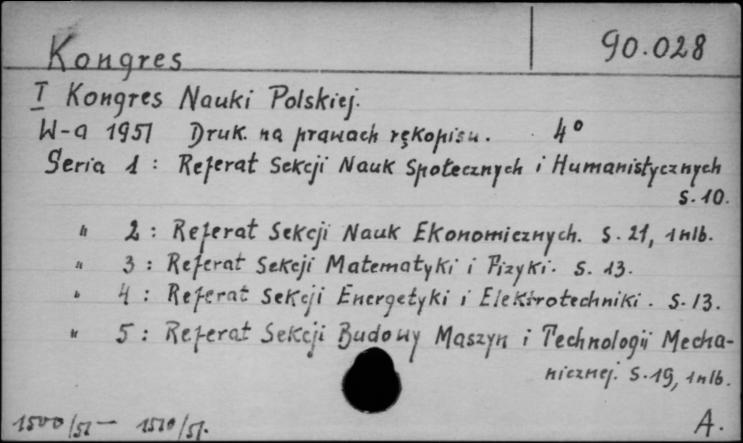 Kongres 90.028
I Kongres Nauki Polskiej.
W-a 1951 Druk. na prawach rękopisu. 4°
Seria 1 : Referat Sekcji Nauk Społecznych i Humanistycznych
s. 10.
" 2 : Referat Sekcji Nauk Ekonomicznych. s. 21, 1 nlb.
" 3 : Referat Sekcji Matematyki i Fizyki. s. 13.
" 4 : Referat Sekcji Energetyki i Elektrotechniki. s. 13.
" 5 : Referat Sekcji Budowy Maszyn i Technologii Mecha-
nicznej. s. 19, 1 nlb.
1500/51 — 1510/51. A.